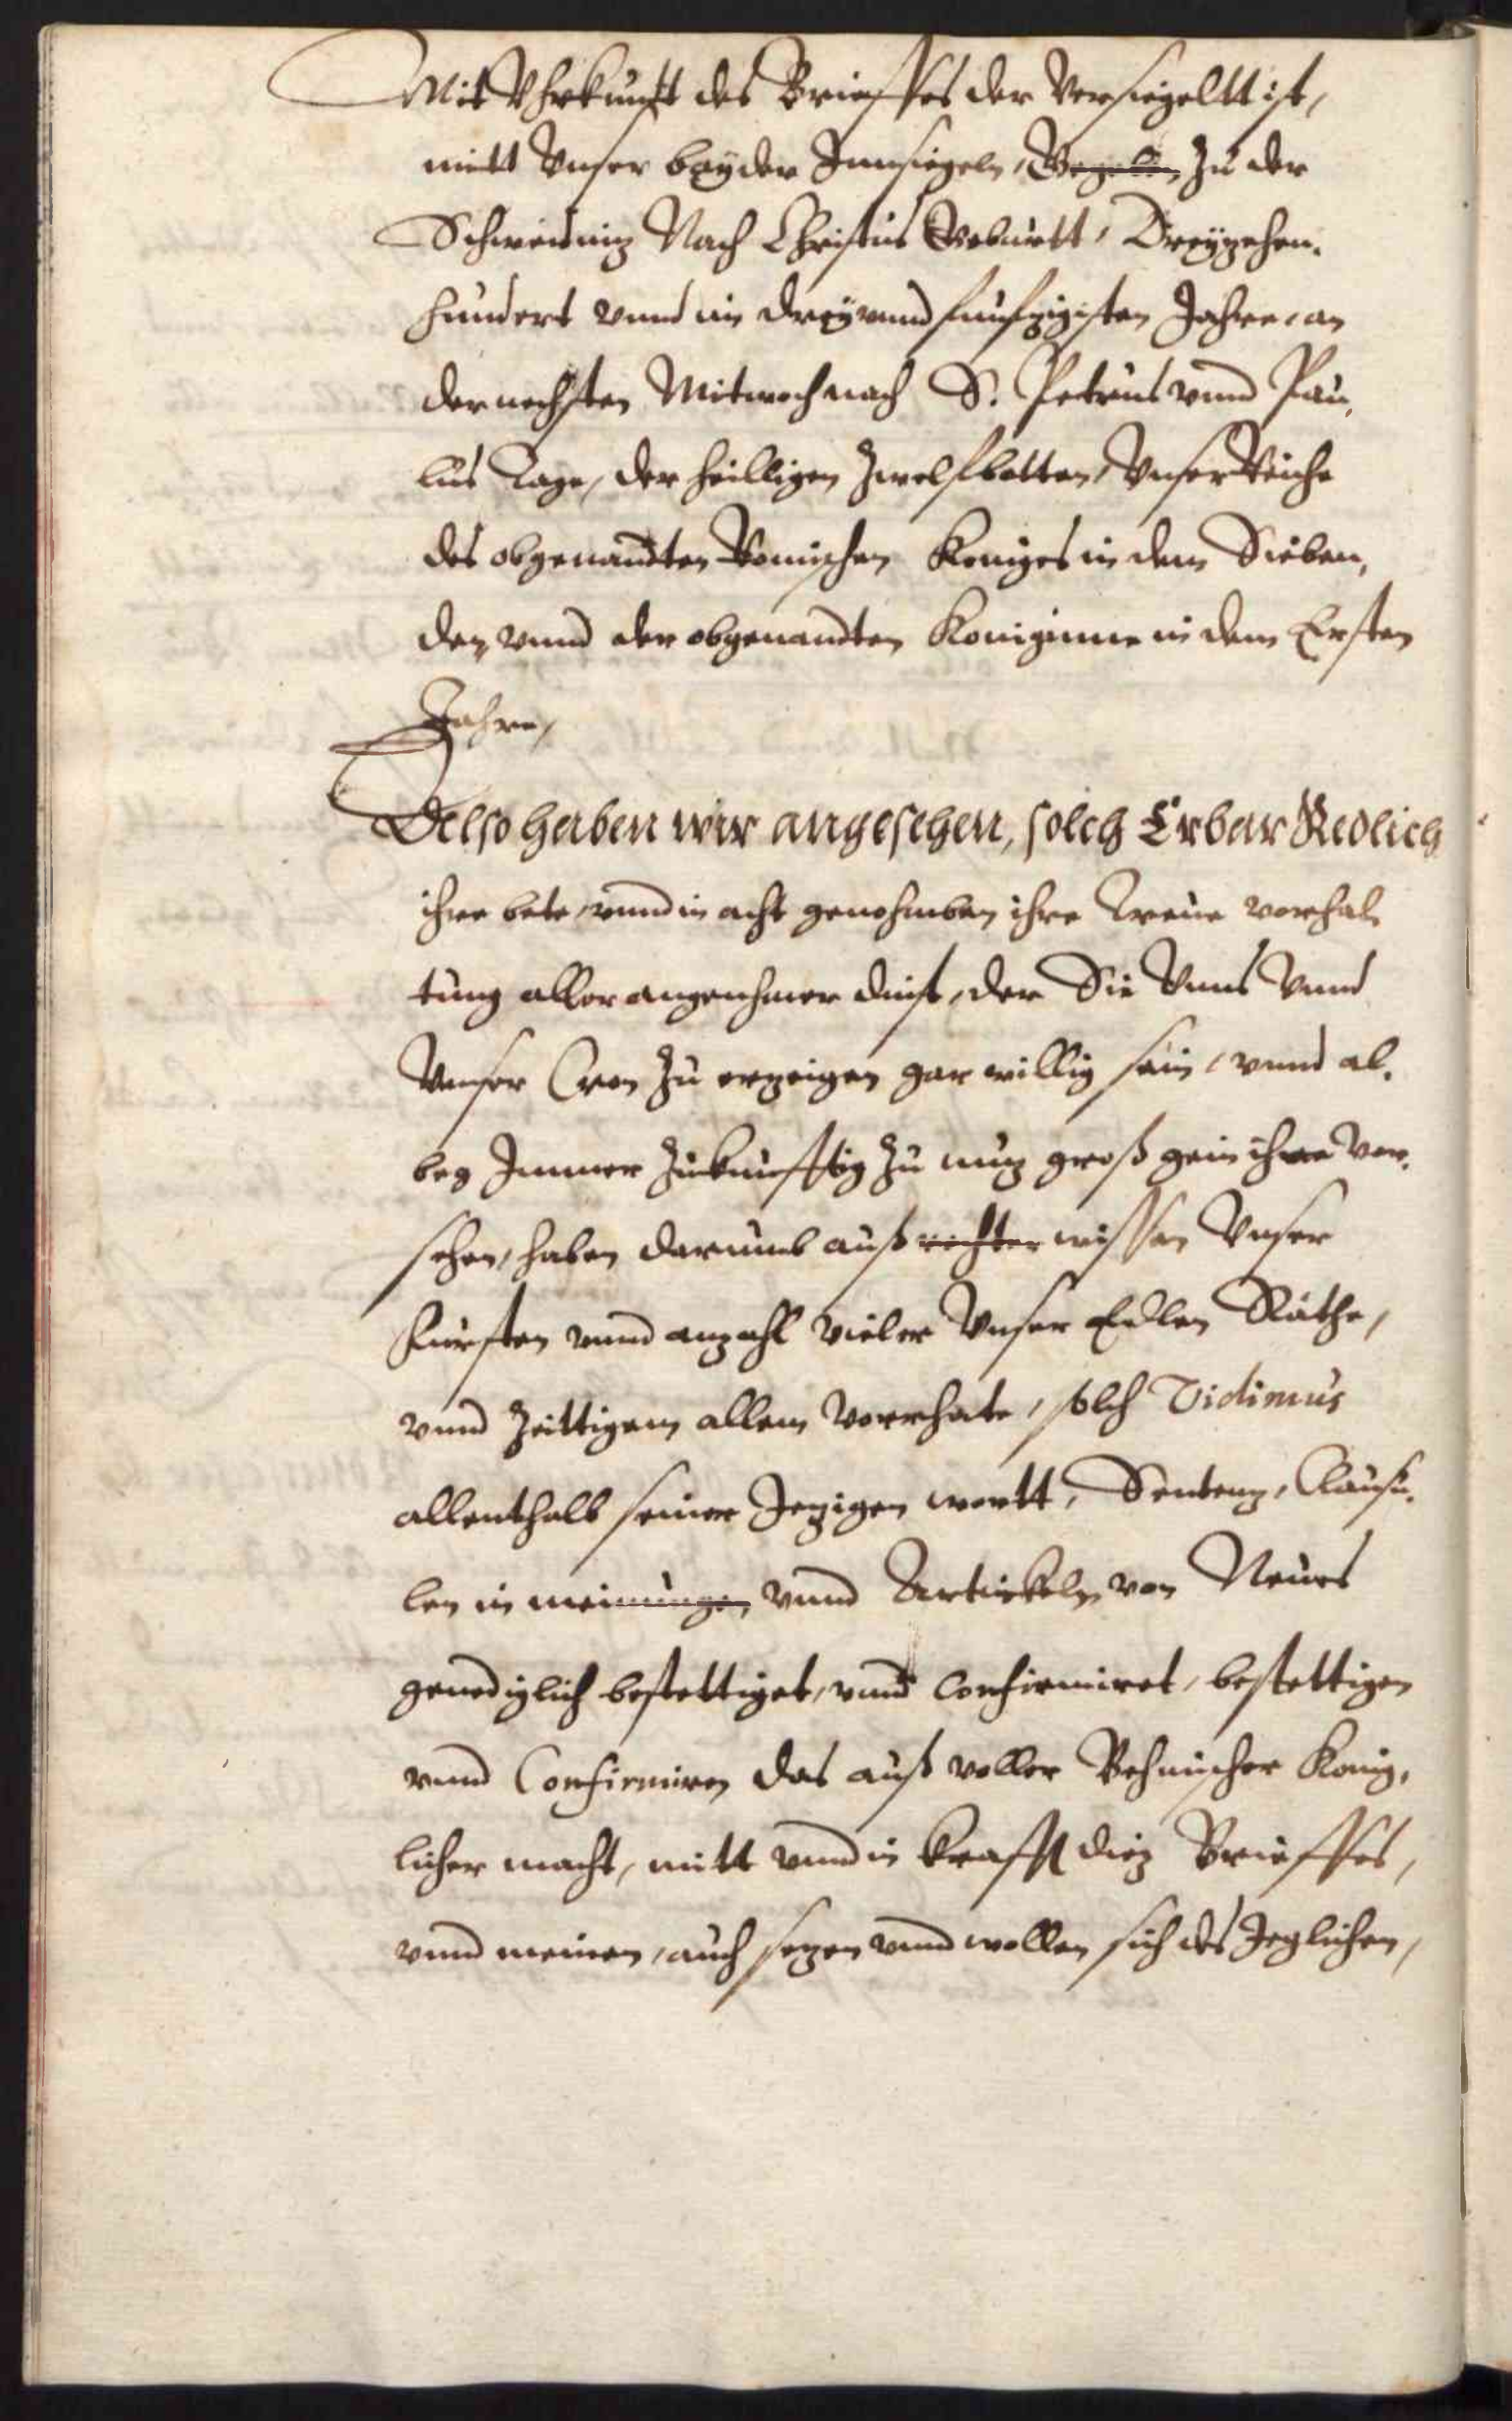 Mit Uhrkunfft des Brieffes der Versiegeltt ist,
mitt Unser beyder Innsiegeln, Gegeben Zu der
Schweidnig Nach Christus Geburtt, Dreyzehen-
hundert vnnd in dreyvnndfunfzigisten Jahre, an
der nechsten Mitwoch nach S. Petrus vnnd Pau-
lus Tage, der heilligen Zwelfbotten, Unser Reiche
des obgenandten Romischen Koniges in dem Sieben,
den vnnd der obgenandten Koniginne in dem Ersten
Jahre,
Also haben wir angesehen, solch Erbar Redlich
ihre bete, vnnd in acht genohmben ihre Treue vorhal-
tung aller angenehmer dinst, der Sie Unns Vnnd
Unser Cron Zu erzeigen gar willig sein, vnnd al-
beg Immer Zukunfftig Zu nuz groß ihre ver-
sehen, haben darumb auß rechter wissen Unser
Fursten vnnd anzahl vieler Unser Edlen Räthe,
vnnd Zeittigem allem Vorrhate, solch Vidimus
allenthalb seiner Jezigen wortt, Sentenz, Clausu-
len in meinungen, vnnd Artickeln von Neues
genediglich bestettiget, vnnd Confirmiret, bestettigen
vnnd Confirmiren das auß voller Behmischer Konig-
licher macht, mitt vnnd in krafft diz Brieffes,
vnnd meinen, auch sezen vnnd wollen sich des Jeglichen,